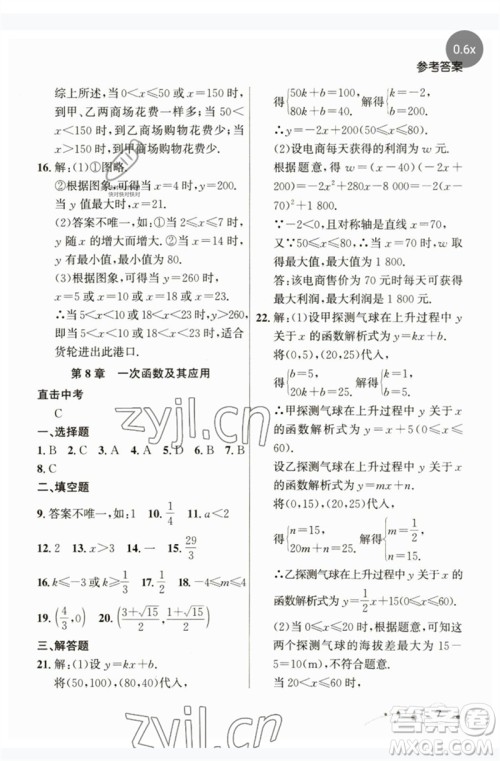 0.6x
参考答案
综上所述,当0<x≤50或x=150时,
到甲、乙两商场花费一样多;当50<
x<150时,到乙商场购物花费少;当
x>150时,到甲商场购物花费少.
16. 解:(1)①图略.
②根据图象,可得当x=4时,y=200,
当y值最大时,x=21.
(2)答案不唯一,如①当2≤x≤7时,
y随x的增大而增大.②当x=14时,
y有最小值,最小值为80.
(3)根据图象,可得当y=260时,x=
5或x=10或x=18或x=23.
∴当5<x<10或18<x<23时,y>
260,即当5<x<10或18<x<23时,适合
货轮进出此港口.
第8章 一次函数及其应用
直击中考
C
一、选择题
1. B 2. A 3. D 4. C 5. B 6. A 7. B
8. C
二、填空题
9. 答案不唯一,如1 10. 1/4 11. a<2
12. 2 13. x>3 14. -1/3 15. 29/3
16. k≤-3或k≥1/4 18. -4≤b≤4
19. (4/3, 0) 20. ((3+√15)/2, (1+√15)/2)
三、解答题
21. 解:(1)设y=kx+b.
将(50,100),(80,40)代入,
得{50k+b=100, 80k+b=40, 解得{k=-2, b=200.
∴y=-2x+200(40≤x≤80).
(2)设电商每天获得的利润为w元.
∵-2<0,且对称轴是直线x=70,
又∵40≤x≤80,∴当x=70时,w取
得最大值为1 800.
答:该电商售价为70元时每天可获得
最大利润,最大利润是1 800.
22. 解:(1)设甲探测气球在上升过程中y
关于x的函数解析式为y=kx+b.
将(0,5),(20,25)代入,
得{b=5, 20k+b=25, 解得{k=1, b=5.
∴甲探测气球在上升过程中y关于x
的函数解析式为y=x+5(x≥0).
设乙探测气球在上升过程中y关于x
的函数解析式为y=mx+n.
将(0,15),(20,25)代入,
得{n=15, 20m+n=25, 解得{m=1/2, n=15.
∴乙探测气球在上升过程中y关于x
的函数解析式为y=1/2x+15(x≥0).
zyjl.cn
zyjl.cn
答案圈
MXQE.COM